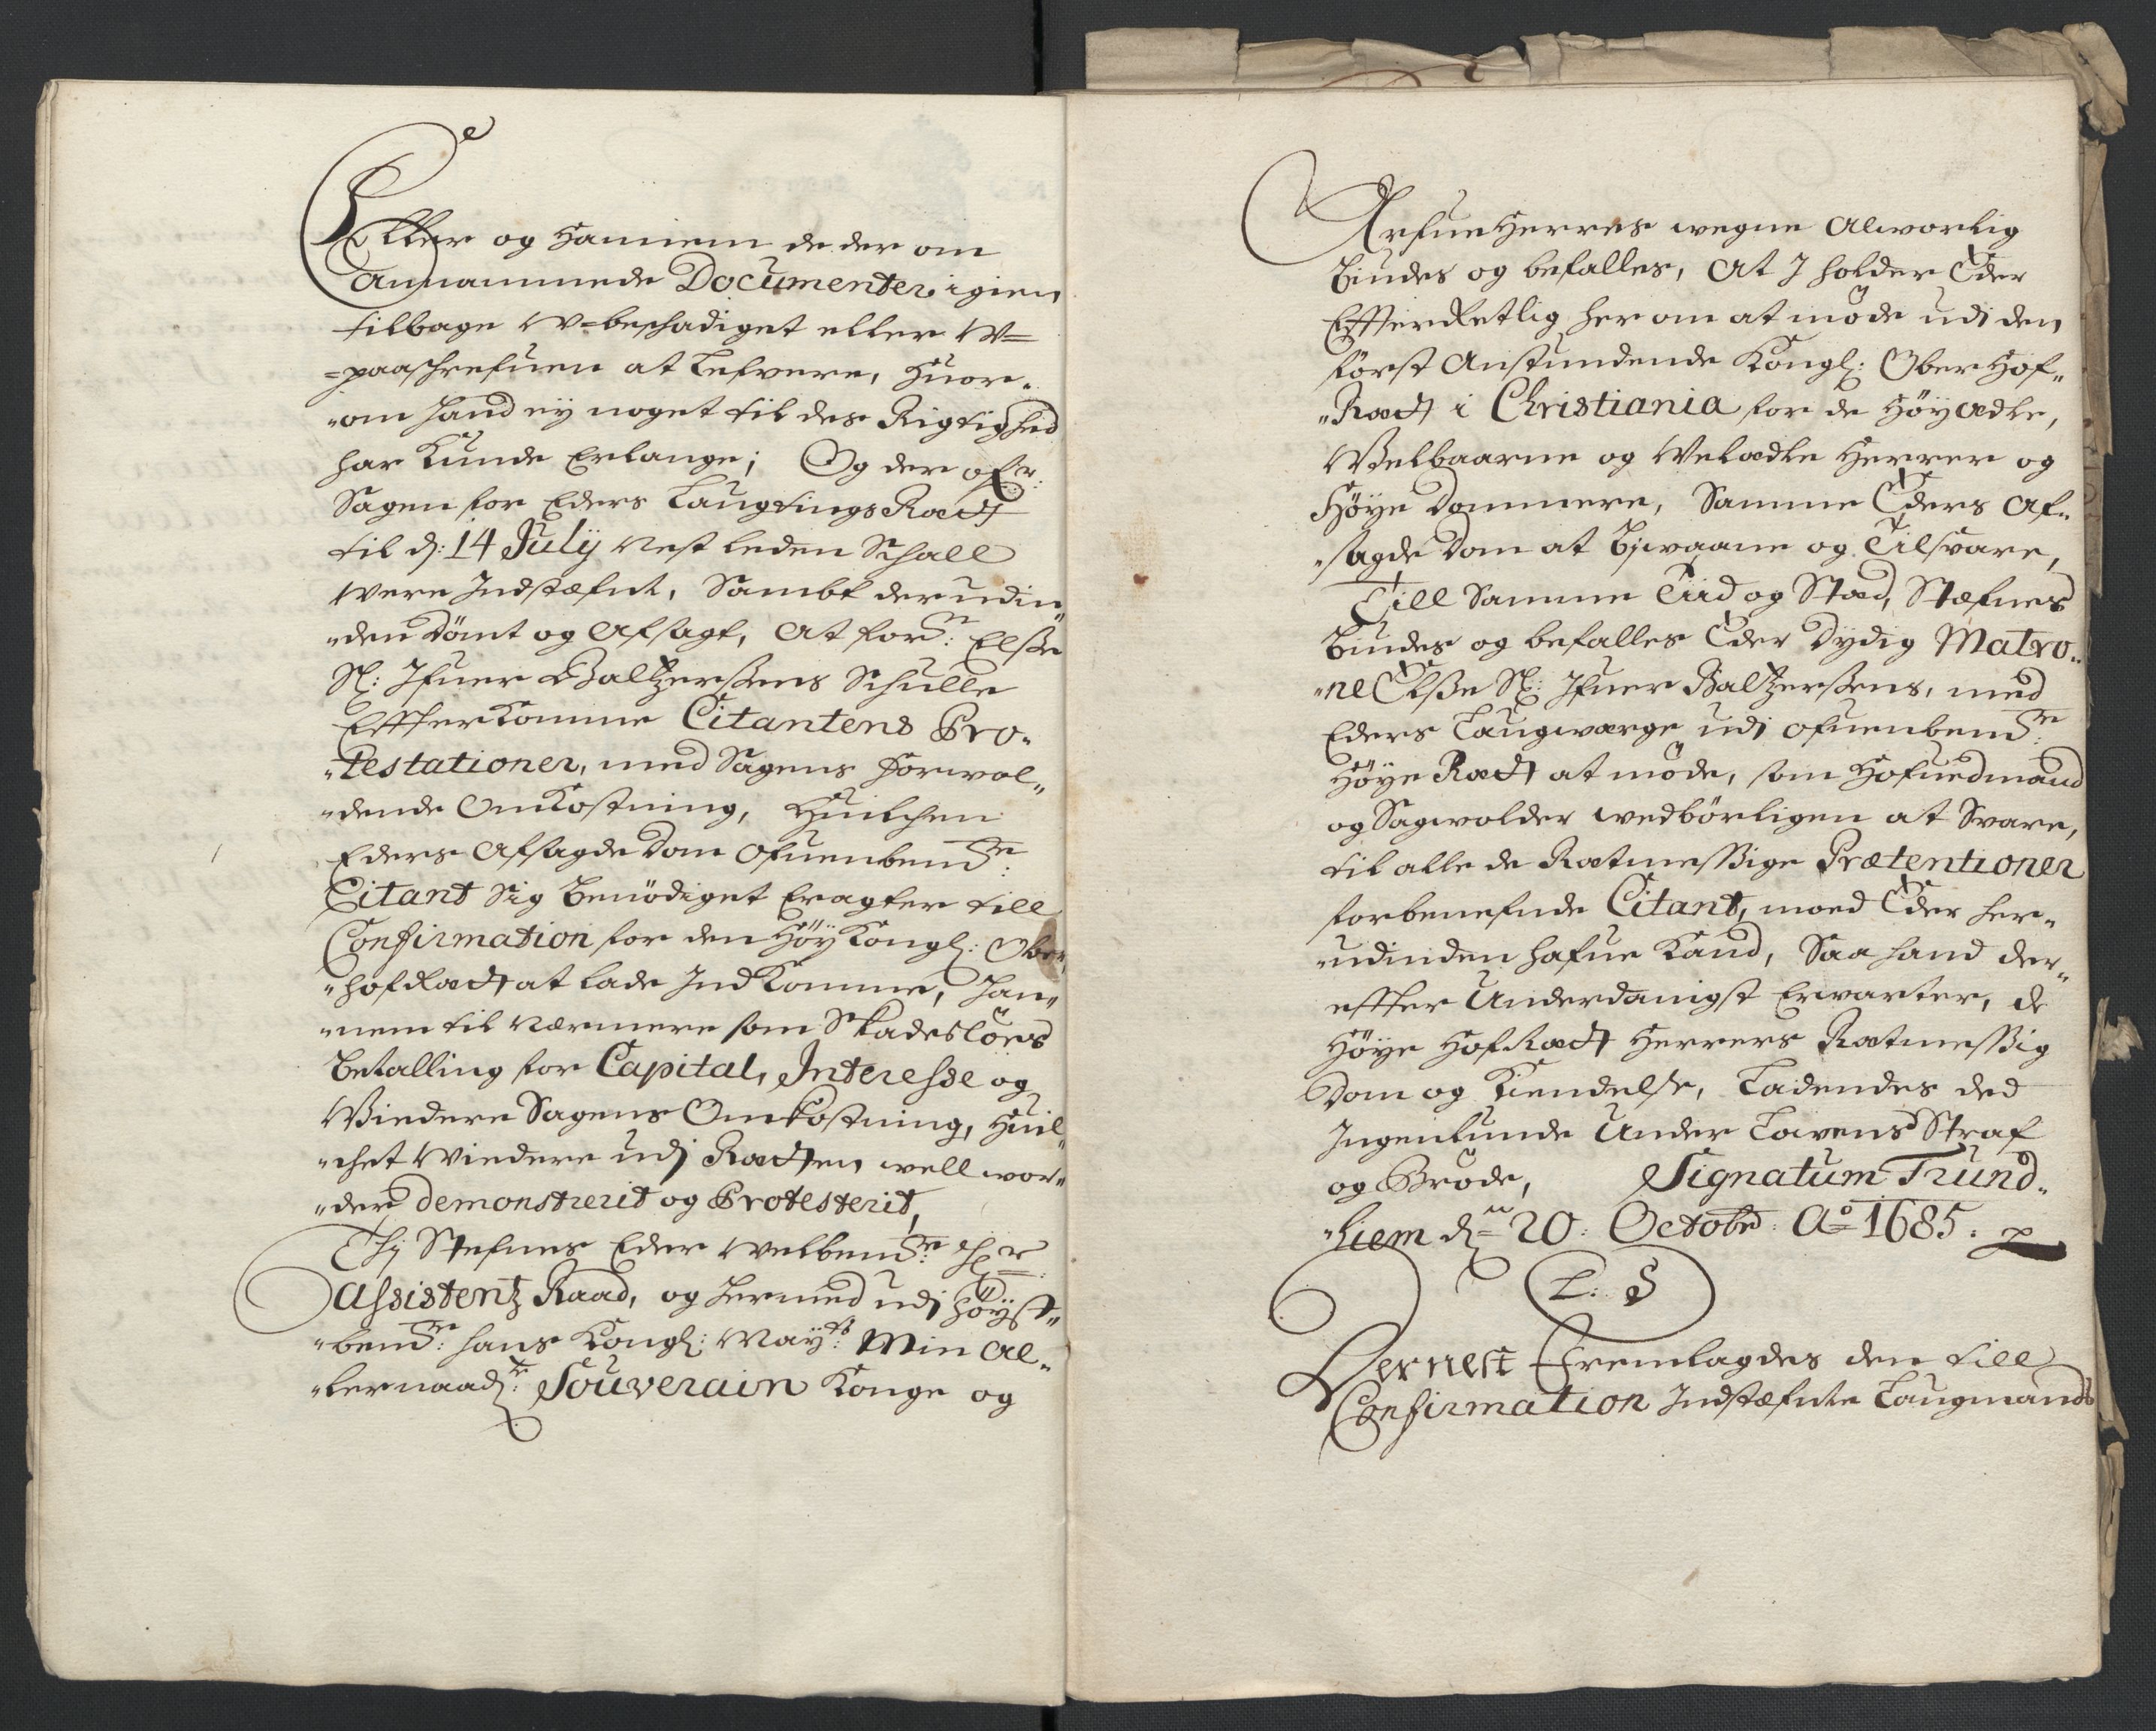 Eller og Hannem de der om
Annammede Documenter igien
tilbage W=beschadiget eller W=
=paaschrefuen at Lefvere, Huor„
„om hand ey noget til des Rigtighed
har Kunde Erlange; Og der ofr:
Sagen for Eders LaugtingsRætt
til d: 14 July nest leden Schall
Were Indstæfnt, Sambt derudin„
„den Dömt og Afsagt, At forne: Elsse
Sl: Ifuer Baltzerssens Schulle
EffterKomme Citantens Pro„
„testationer, med Sagens Forvol„
„dende OmKostning, Huilchen
Eders Afsagde Dom Ofuenbemte:
Citant Sig Benödiget Eragter till
Confirmation for den HöyKongl: Ober„
„hofRætt at lade IndKomme, Han„
„nem til nærmere som Skadeslöes
Betalling for Capital, Interesse og
Wiedere Sagens Omkostning, Huil„
„chet Wiedere udj Rætten well wor„
„der demonstrerit og Protesterit,
Thj Stefnes Eder Welbemte: Hr
Assistentz Raad, og Hermed udj Höyst„
„bemte: Hans Kongl: Mayts: Min Al„
„lernaadte: Souverain Konge og
ArfueHerres wegne Alworlig
Biudes og befalles, At I holder Eder
EffterRetlig her om at möde udi den
först Anstundende Kongl: OberHof„
„Rætt i Christiania for de HöyÆdle,
Welbaarne og Welædle Herrer og
Höye Dommere, Samme Eders Af„
„sagde Dom at Bjwaane og Tilsvare,
Till Samme Tiid og Stæd, Stæfnes
Biudes og befalles Eder Dydig Matro„
„ne Elsse Sl: Ifuer Baltzerssens, med
Eders Laugwærge udj ofuenbemte:
Höye Rætt at möde, som Hofuedmand
og Sagwolder wedbörligen at Svare,
til alle de Rætmessige Prætentioner
forbenefnde Citant, moed Eder her„
„udinden hafue Kand, Saa hand der„
effter Underdanigst Erwarter, de
Höye HofRætt Herrers Rætmessig
Dom og Kiendelse, Ladendes ded
Ingenlunde Under Lovens Straf
og Bröde, Signatum Trund„
„hiem dn 20: Octobr: Ao 1685. p
L: S
Dernest Fremlagdes den till
Confirmation Indstæfnte Laugmands